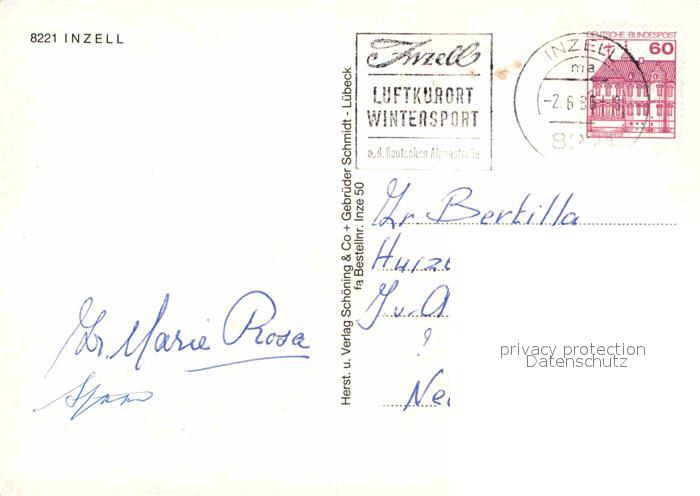 8221 INZELL
Inzell
LUFTKURORT
WINTERSPORT
a.d. Deutschen Alpenstraße
INZELL
ma
-2.6.8
DEUTSCHE BUNDESPOST
60
Herst. u. Verlag Schöning & Co + Gebrüder Schmidt - Lübeck
fa Bestellnr. Inze 50
Zr. Bertilla
Huize
Zr. Marie Rosa
?
privacy protection
Datenschutz